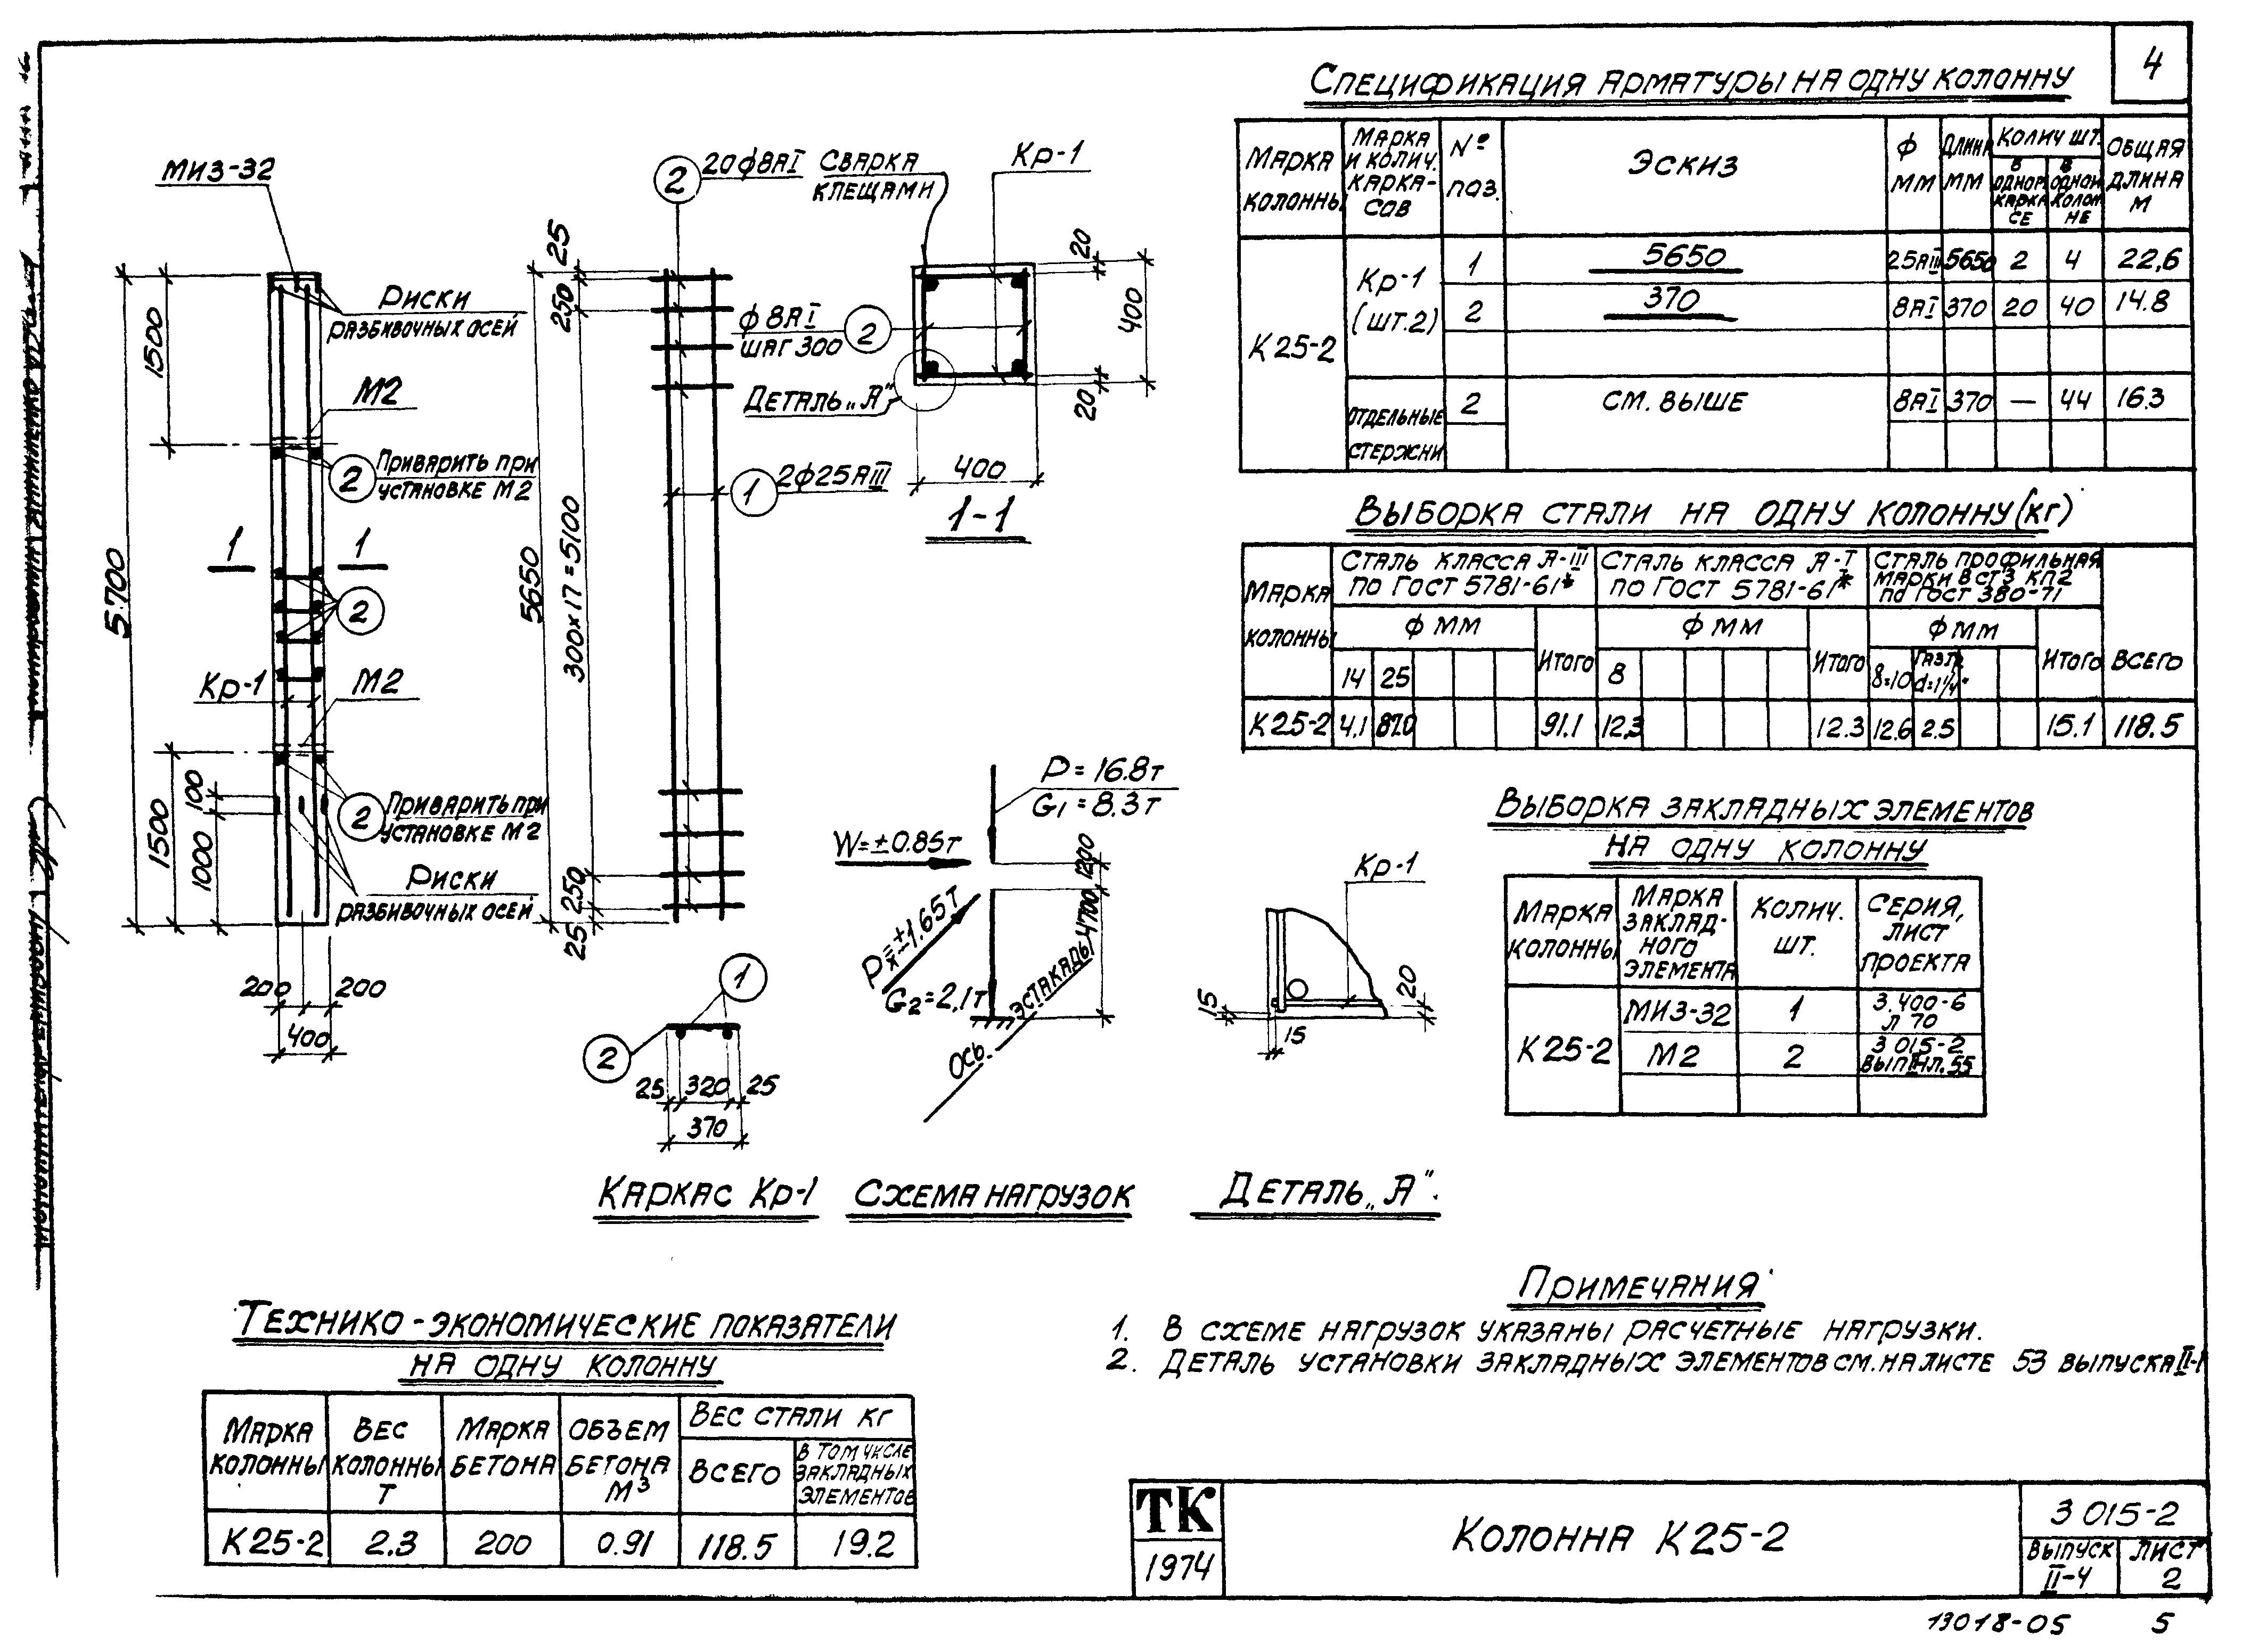 4
Спецификация арматуры на одну колонну
Марка колонны
Марка и колич. каркасов
№ поз.
Эскиз
ф мм
Длина мм
Колич шт.
в одном каркасе
в одной колонне
Общая длина м
К 25-2
Кр-1 (шт.2)
1 5650 25АIII 5650 2 4 22,6
2 370 8АI 370 20 40 14.8
отдельные стержни
2 см. выше 8АI 370 — 44 16.3
Выборка стали на одну колонну (кг)
Марка колонны
Сталь класса А-III по ГОСТ 5781-61*
Сталь класса А-I по ГОСТ 5781-61*
Сталь профильная марки В ст3 кп2 по ГОСТ 380-71
ф мм
ф мм
ф мм
14 25 Итого 8 Итого δ=10 Газл. d=1¼" Итого Всего
К 25-2 4.1 87.0 91.1 12,3 12.3 12.6 2.5 15.1 118.5
Выборка закладных элементов
на одну колонну
Марка колонны
Марка закладного элемента
Колич. шт.
Серия, лист проекта
К 25-2
МИ3-32 1 3.400-6 л 70
М2 2 3 015-2 вып II-1 л. 55
МИ3-32
Риски
разбивочных осей
1500
5700
М2
2 Приварить при
установке М2
1 1
2
Кр-1
М2
2 Приварить при
установке М2
100
1500
1000
Риски
разбивочных осей
200 200
400
2 20ф8АI
25
250
300х17=5100
5650
1 2ф25АIII
250
25
1
2
25 320 25
370
Каркас Кр-1
Сварка
клещами
Кр-1
ф8АI
шаг 300
2
Деталь „А"
20
400
20
400
1-1
P=16.8т
G1=8.3т
W=±0.85т
1200
Pх=±1.65т
4700
G2=2,1т
Ось эстакады
Схема нагрузок
Кр-1
15
20
15
Деталь „А".
Технико-экономические показатели
на одну колонну
Марка колонны
Вес колонны т
Марка бетона
Объем бетона м3
Вес стали кг
Всего
в том числе закладных элементов
К 25-2 2.3 200 0.91 118.5 19.2
Примечания
1. В схеме нагрузок указаны расчетные нагрузки.
2. Деталь установки закладных элементов см. на листе 53 выпуска II-1
ТК
1974
Колонна К 25-2
3 015-2
Выпуск II-4
Лист 2
13018-05 5